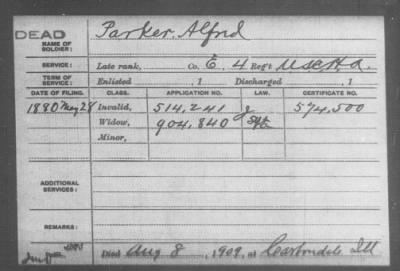 DEAD
Parker, Alfred
NAME OF SOLDIER:
SERVICE: Late rank, Co. E. 4 Reg't U.S.C.H.A.
TERM OF SERVICE: Enlisted , 1 Discharged , 1
DATE OF FILING. CLASS. APPLICATION NO. LAW. CERTIFICATE NO.
1880 May 28 Invalid, 514,241 g 574,500
Widow, 904,840
Minor,
ADDITIONAL SERVICES:
REMARKS:
Died Aug 8, 1909, at Carbondale Ill